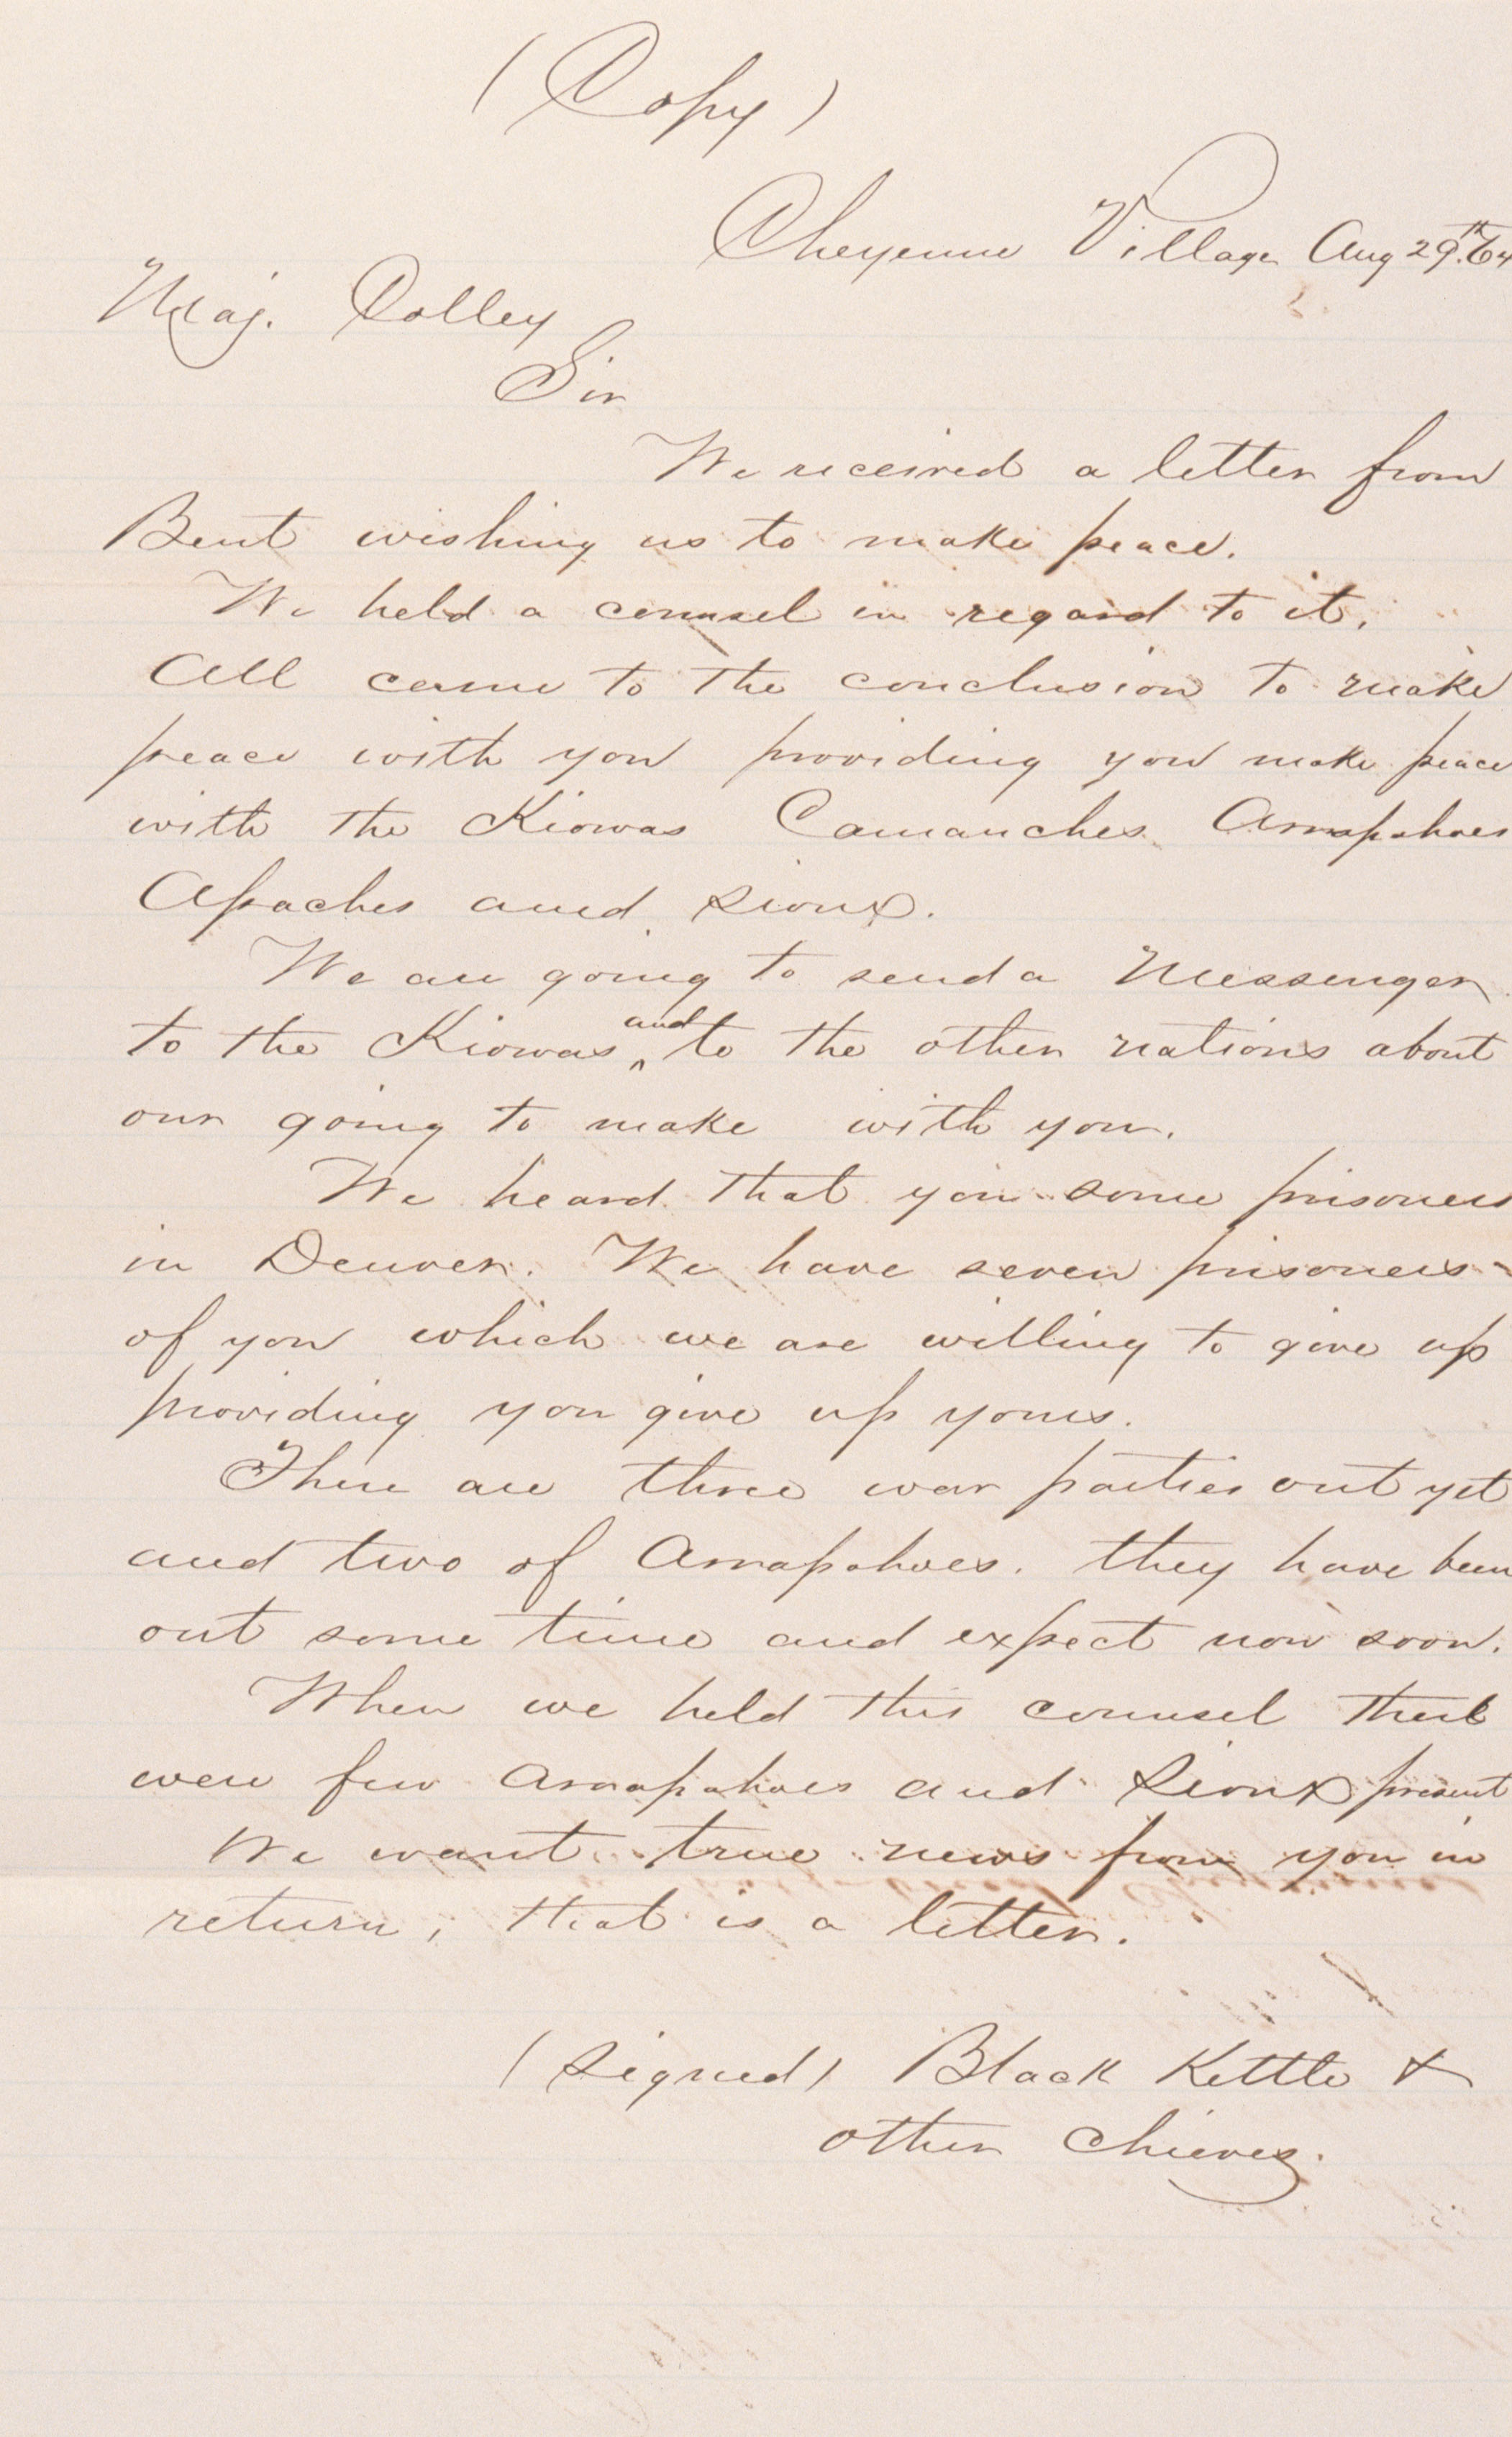 (Copy)
Cheyenne Village Aug 29th. 64
Maj. Colley
Sir
We received a letter from
Bent wishing us to make peace.
We held a counsel in regard to it.
All came to the conclusion to make
peace with you providing you make peace
with the Kiowas Camanches Arrapahoes
Apaches and Sioux.
We are going to send a Messenger
to the Kiowas and to the other nations about
our going to make with you.
We heard that you some prisoners
in Denver. We have seven prisoners
of you which we are willing to give up
providing you give up yours.
There are three war parties out yet
and two of Arrapahoes. they have been
out some time and expect now soon.
When we held this counsel there
were few Arrapahoes and Sioux present
We want true news from you in
return, that is a letter.
(Signed) Black Kettle &
other Chieves.